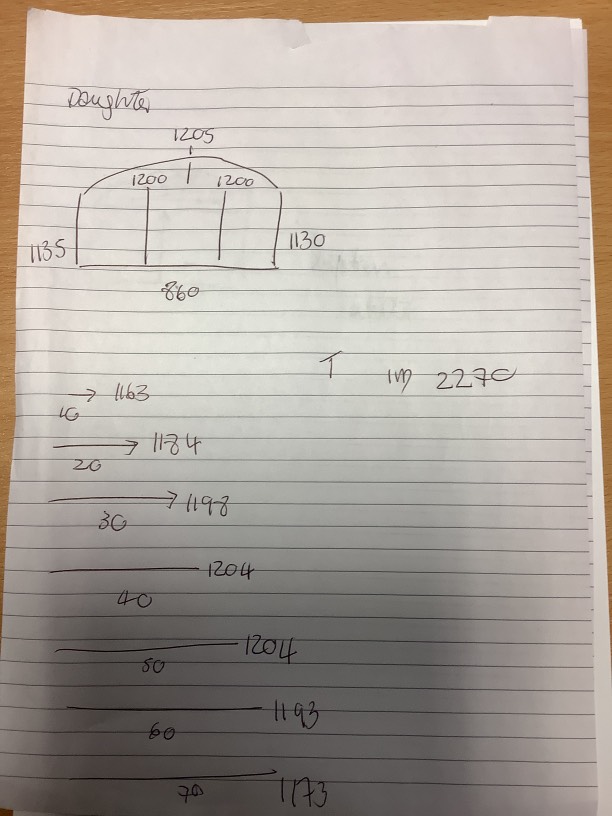 Daughter
1205
1200 1200
1135 1130
860
T 1m 2270
10 1163
20 1184
30 1198
40 1204
50 1204
60 1193
70 1173